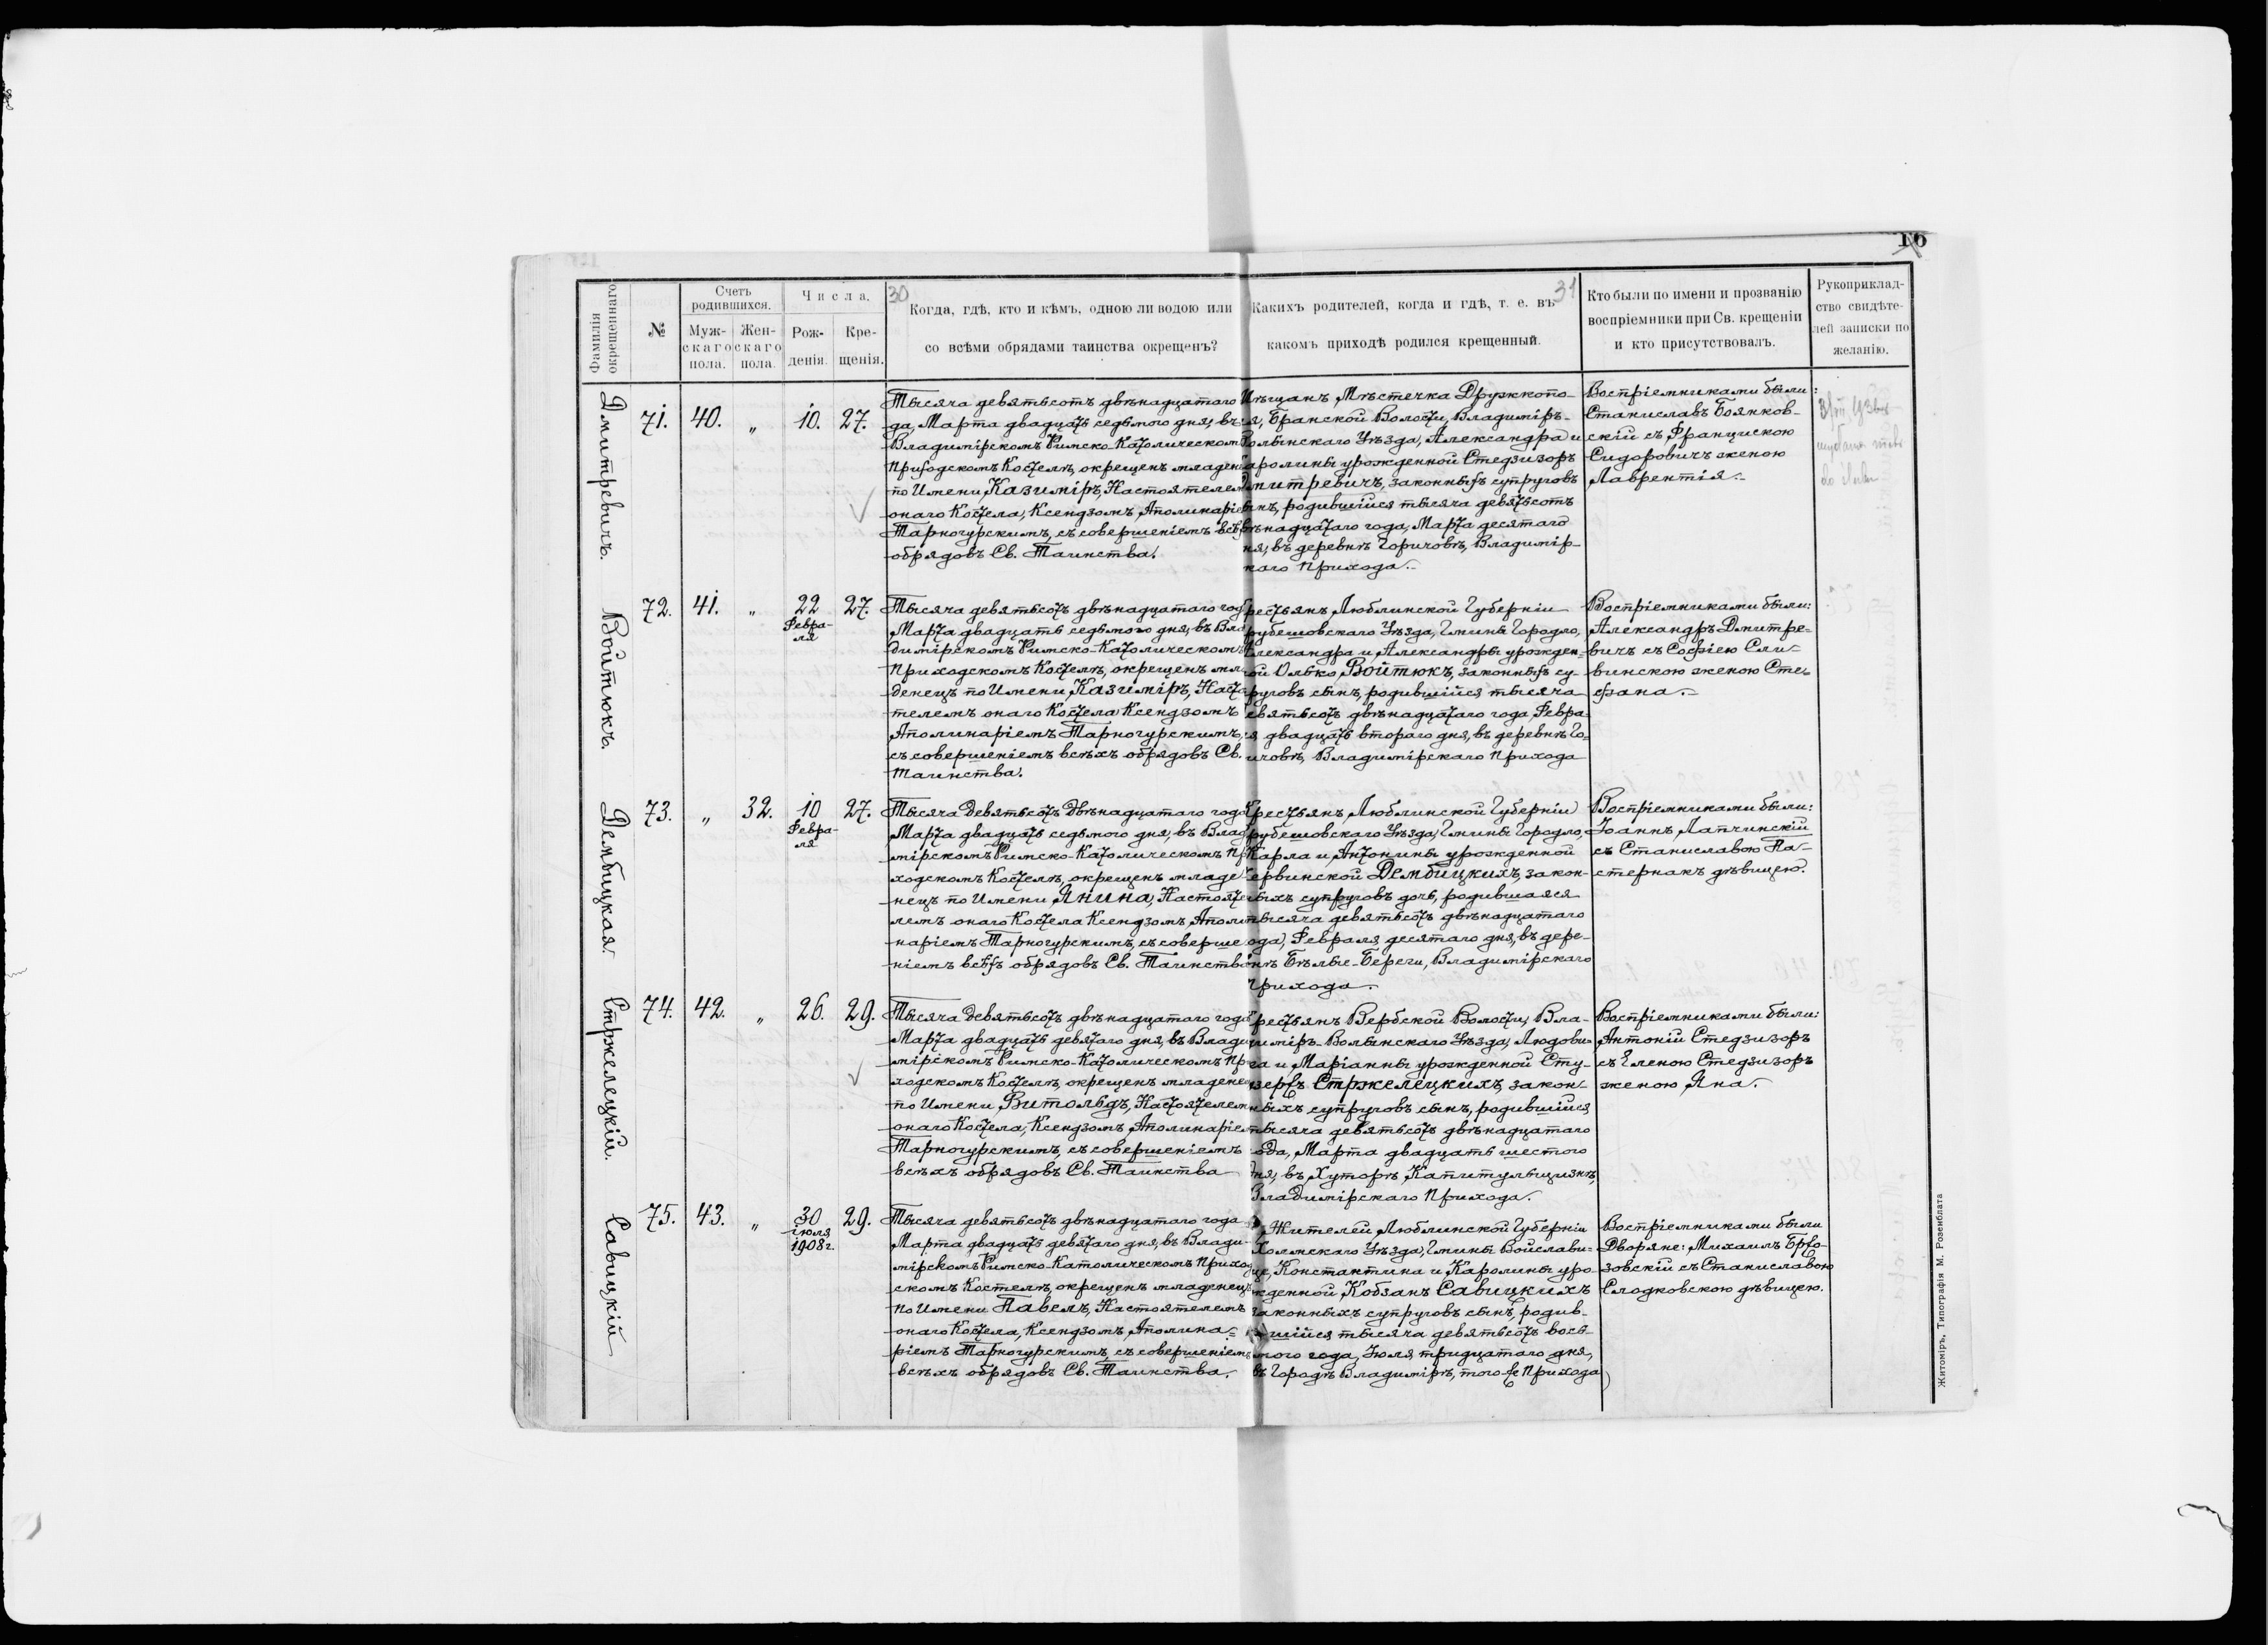 16
30
31
Фамилія окрещеннаго
№
Счетъ родившихся.
Мужскаго пола.
Женскаго пола.
Числа.
Рожденія.
Крещенія.
Когда, гдѣ, кто и кѣмъ, одною ли водою или
со всѣми обрядами таинства окрещенъ?
Какихъ родителей, когда и гдѣ, т. е. въ
какомъ приходѣ родился крещенный.
Кто были по имени и прозванію
воспріемники при Св. крещеніи
и кто присутствовалъ.
Рукоприклад-
ство свидѣте-
лей записки по
желанію.
Дмитревичъ.
71. 40. „ 10. 27.
Тысяча девятьсотъ двѣнадцатаго
да, Марта двадцать седьмого дня, въ
Владимірскомъ Римско-Католическомъ
Приходскомъ Костелѣ, окрещенъ младен
по Имени Казиміръ, Настоятелем
онаго Костела, Ксендзомъ Аполинаріе
Тарногурскимъ, съ совершеніемъ всѣхъ
обрядовъ Св. Таинства.
Мѣщанъ Мѣстечка Дружкопо-
я, Бранской Волости, Владиміръ-
Волынскаго Уѣзда, Александра и
аролины урожденной Стедзизоръ
Дмитревичъ, законныхъ супруговъ
ынъ, родившійся тысяча девятьсотъ
вѣнадцатаго года, Марта десятаго
ня, въ деревнѣ Горичовѣ, Владимір-
каго Прихода.
Воспріемниками были:
Станиславъ Боянков-
скій съ Францискою
Сидоровичъ женою
Лаврентія.
Войтюкъ.
72. 41. „ 22 Февра-
ля 27.
Тысяча девятьсотъ двѣнадцатаго год
Марта двадцать седьмого дня, въ Вла
димірскомъ Римско-Католическомъ
Приходскомъ Костелѣ, окрещенъ мла
денецъ по Имени Казиміръ, Насто
телемъ онаго Костела Ксендзомъ
Аполинаріемъ Тарногурскимъ,
съ совершеніемъ всѣхъ обрядовъ Св.
Таинства.
рестьянъ Люблинской Губерніи
рубешовскаго Уѣзда, Гмины Городло,
Александра и Александры урожден-
ой Олько Войтюкъ, законныхъ су-
руговъ сынъ, родившійся тысяча
евятьсотъ двѣнадцатаго года, Февра-
я двадцать второго дня, въ деревнѣ Го-
ичовѣ, Владимірскаго Прихода
Воспріемниками были:
Александръ Дмитре-
вичъ съ Софіею Сли-
винскою женою Сте-
фана.
Дембицкая.
73. „ 32. 10 Февра-
ля 27.
Тысяча Девятьсотъ Двѣнадцатаго года
Марта двадцать седьмого дня, въ Влад
мірскомъ Римско-Католическомъ Пр
ходскомъ Костелѣ, окрещенъ младе
нецъ по Имени Янина, Настояте
лемъ онаго Костела Ксендзомъ Аполи
наріемъ Тарногурскимъ, съ соверше
ніемъ всѣхъ обрядовъ Св. Таинства
Крестьянъ Люблинской Губерніи
рубешовскаго Уѣзда, Гмины Городло,
Карла и Антонины урожденной
ервинской Дембицкихъ, закон-
ныхъ супруговъ дочь, родившаяся
тысяча девятьсотъ двѣнадцатаго
ода, Февраля десятаго дня, въ дере-
внѣ Бѣлые-Береги, Владимірскаго
Прихода.
Воспріемниками были:
Іоаннъ Лапчинскій
съ Станиславою Па-
стернакъ дѣвицею.
Стржелецкій.
74. 42. „ 26. 29.
Тысяча девятьсотъ двѣнадцатаго года
Марта двадцать девятаго дня, въ Влади
мірскомъ Римско-Католическомъ Пр
ходскомъ Костелѣ, окрещенъ младене
по Имени Витольдъ, Настоятелем
онаго Костела, Ксендзомъ Аполинаріе
Тарногурскимъ, съ совершеніемъ
всѣхъ обрядовъ Св. Таинства
рестьянъ Вербской Волости, Вла-
иміръ-Волынскаго Уѣзда, Людови-
га и Маріанны урожденной Сту-
Стржелецкихъ, закон-
ныхъ супруговъ сынъ, родившійся
тысяча девятьсотъ двѣнадцатаго
ода, Марта двадцать шестого
дня, въ Хуторѣ Капитульщизнѣ,
Владимірскаго Прихода.
Воспріемниками были:
Антоній Стедзизоръ
съ Еленою Стедзизоръ
женою Яна.
Савицкій
75. 43. „ 30 іюля
1908 г. 29.
Тысяча девятьсотъ двѣнадцатаго года
Марта двадцать девятаго дня, въ Влади-
мірскомъ Римско-Католическомъ Приход
скомъ Костелѣ, окрещенъ младенецъ
по Имени Павелъ, Настоятелемъ
онаго Костела, Ксендзомъ Аполина-
ріемъ Тарногурскимъ, съ совершеніемъ
всѣхъ обрядовъ Св. Таинства.
Жителей Люблинской Губерніи
Холмскаго Уѣзда, Гмины Войслави-
це, Константина и Каролины уро-
жденной Кобзанъ Савицкихъ
законныхъ супруговъ сынъ, родив-
шійся тысяча девятьсотъ вось-
мого года, Іюля тридцатаго дня,
въ Городѣ Владимірѣ, того же Прихода
Воспріемниками были
Дворяне: Михаилъ Бржо-
зовскій съ Станиславою
Слодковскою дѣвицею.
Житоміръ, Типографія М. Розенблата